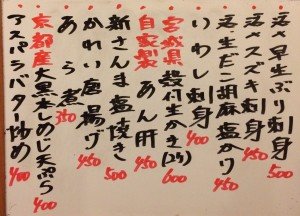 活〆早生ぶり刺身 500
活〆スズキ刺身 450
活〆生だこ胡麻塩かけ 450
いわし刺身 400
宮城県殻付生かき(2ケ) 600
自家製あん肝 450
新さんま塩焼き 500
かれい唐揚げ 450
あら煮 350
京都産大黒本しめじ天ぷら 400
アスパラバター炒め 400